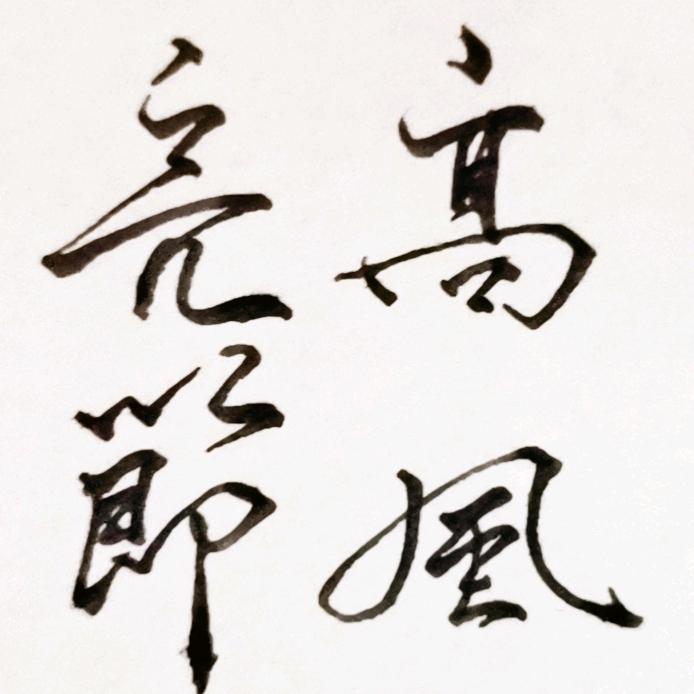 高風
亮節